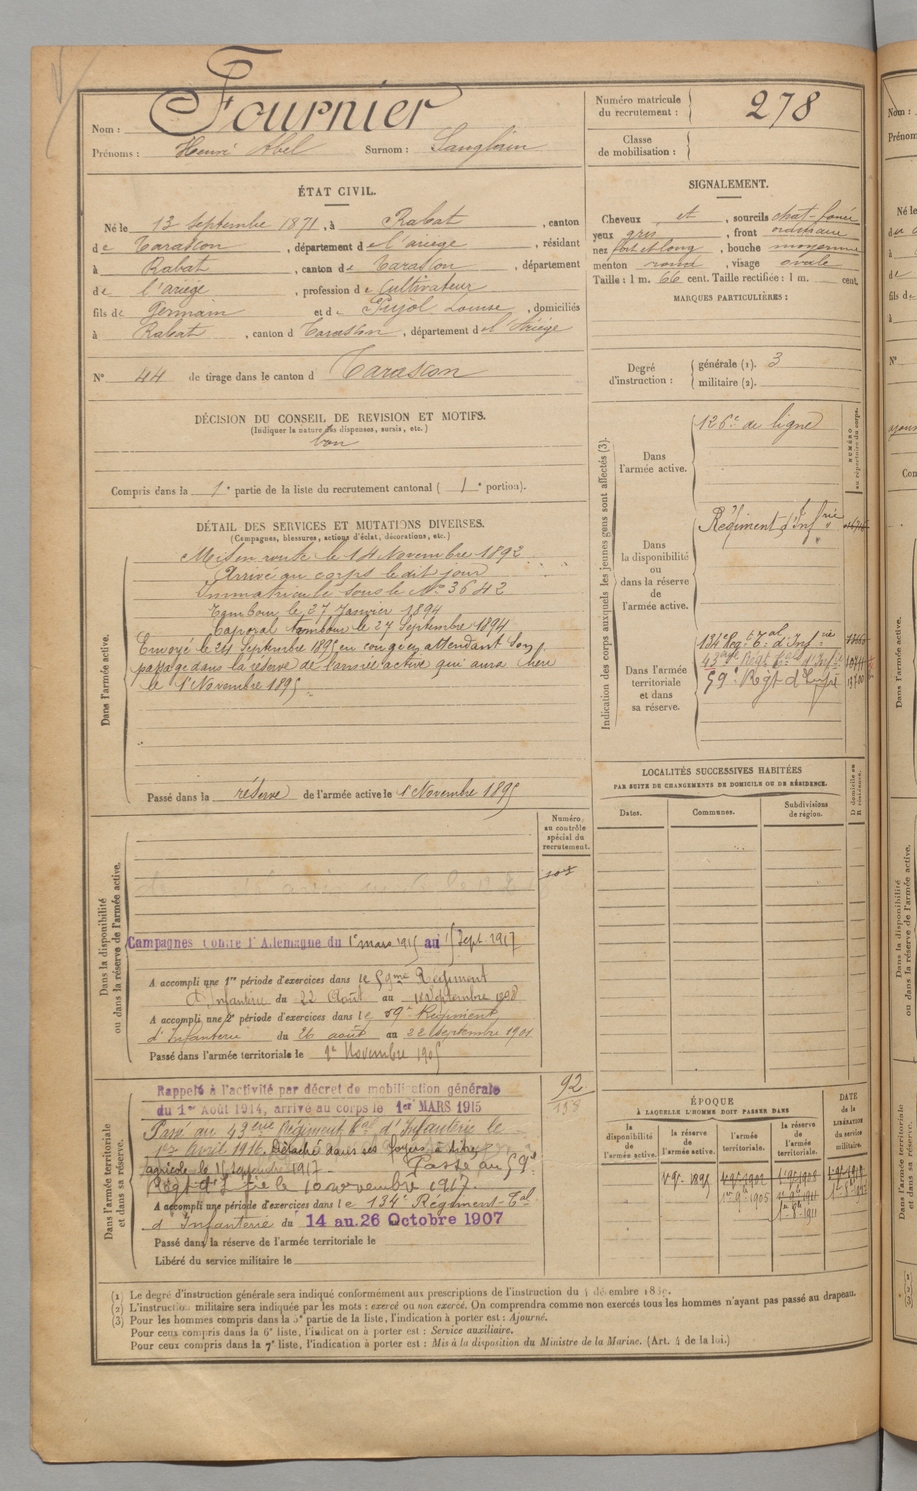 Nom : Fournier
Prénoms : Henri Abel Surnom : Langlain
ÉTAT CIVIL.
Né le 13 Septembre 1871, à Rabat, canton
de Tarascon, département de l'ariège, résidant
à Rabat, canton de Tarascon, département
de l'ariège, profession de Cultivateur
fils de Germain et de Pujol Louise, domiciliés
à Rabat, canton d Tarascon, département de l'Ariège
N° 44 de tirage dans le canton d Tarascon
DÉCISION DU CONSEIL DE REVISION ET MOTIFS.
(Indiquer la nature des dispenses, sursis, etc.)
bon
Compris dans la 1e partie de la liste du recrutement cantonal ( 1e portion).
DÉTAIL DES SERVICES ET MUTATIONS DIVERSES.
(Campagnes, blessures, actions d'éclat, décorations, etc.)
Dans l'armée active.
Mis en route le 14 Novembre 1892
Arrivé au corps le dit jour
Immatriculé sous le No 3642
Tambour le 27 Janvier 1894
Caporal tambour le 27 Septembre 1894
Envoyé le 24 Septembre 1895 en congé en attendant son
passage dans la réserve de l'armée active qui aura lieu
le 1 Novembre 1895
Passé dans la réserve de l'armée active le 1 Novembre 1895
Dans la disponibilité
ou dans la réserve de l'armée active.
Numéro
au contrôle
spécial du
recrutement.
Campagnes contre l'Allemagne du 1er mars 1915 au 15 Sept 1917
A accompli une 1re période d'exercices dans le 59me Régiment
d'Infanterie du 22 Août au
A accompli une 2e période d'exercices dans le 59e Régiment
d'Infanterie du 26 août au 22 septembre 1901
Passé dans l'armée territoriale le 1er Novembre 1905
Dans l'armée territoriale
et dans sa réserve.
92
Rappelé à l'activité par décret de mobilisation générale
du 1er Août 1914, arrivé au corps le 1er MARS 1915
Passé au 43eme Régiment Tal d'Infanterie le
1er Avril 1916. Détaché dans ses foyers à titre
agricole le 15 septembre 1917. Passé au 59e
Régt d'Inf le 10 novembre 1917.
A accompli une période d'exercices dans le 134e Régiment Tal
d'Infanterie du 14 au 26 Octobre 1907
Passé dans la réserve de l'armée territoriale le
Libéré du service militaire le
Numéro matricule
du recrutement : 278
Classe
de mobilisation :
SIGNALEMENT.
Cheveux et, sourcils chat-foncé
yeux gris, front ordinaire
nez fort et long, bouche moyenne
menton rond, visage ovale
Taille : 1 m. 66 cent. Taille rectifiée : 1 m. cent.
MARQUES PARTICULIÈRES :
Degré
d'instruction :
générale (1). 3
militaire (2).
Indication des corps auxquels les jeunes gens sont affectés (3).
NUMÉRO
au répertoire du corps.
Dans
l'armée active.
126e de ligne
Dans
la disponibilité
ou
dans la réserve
de
l'armée active.
Régiment d'Infrie
Dans l'armée
territoriale
et dans
sa réserve.
134e Reg t Tal d'Infrie
43eme Régt Tal d'Infrie
59e Régt d'Infrie
LOCALITÉS SUCCESSIVES HABITÉES
PAR SUITE DE CHANGEMENTS DE DOMICILE OU DE RÉSIDENCE.
Dates.
Communes.
Subdivisions
de région.
D domicile ou
R résidence.
ÉPOQUE
À LAQUELLE L'HOMME DOIT PASSER DANS
la
disponibilité
de
l'armée active.
la réserve
de
l'armée active.
l'armée
territoriale.
la réserve
de
l'armée
territoriale.
DATE
de la
LIBÉRATION
du service
militaire.
1 9bre 1895
1er 9bre 1905
(1) Le degré d'instruction générale sera indiqué conformément aux prescriptions de l'instruction du 4 décembre 1889.
(2) L'instruction militaire sera indiquée par les mots : exercé ou non exercé. On comprendra comme non exercés tous les hommes n'ayant pas passé au drapeau.
(3) Pour les hommes compris dans la 5e partie de la liste, l'indication à porter est : Ajourné.
Pour ceux compris dans la 6e liste, l'indication à porter est : Service auxiliaire.
Pour ceux compris dans la 7e liste, l'indication à porter est : Mis à la disposition du Ministre de la Marine. (Art. 4 de la loi.)